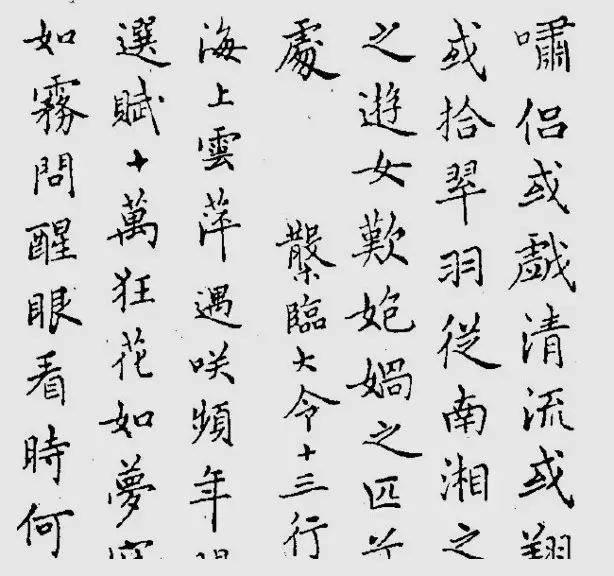 嘯侶或戲清流或翔
或拾翠羽從南湘之
之遊女歎媧之匹兮
處
臨大令十三行
海上雲萍遇咲頻年
選賦十萬狂花如夢
如霧問醒眼看時何